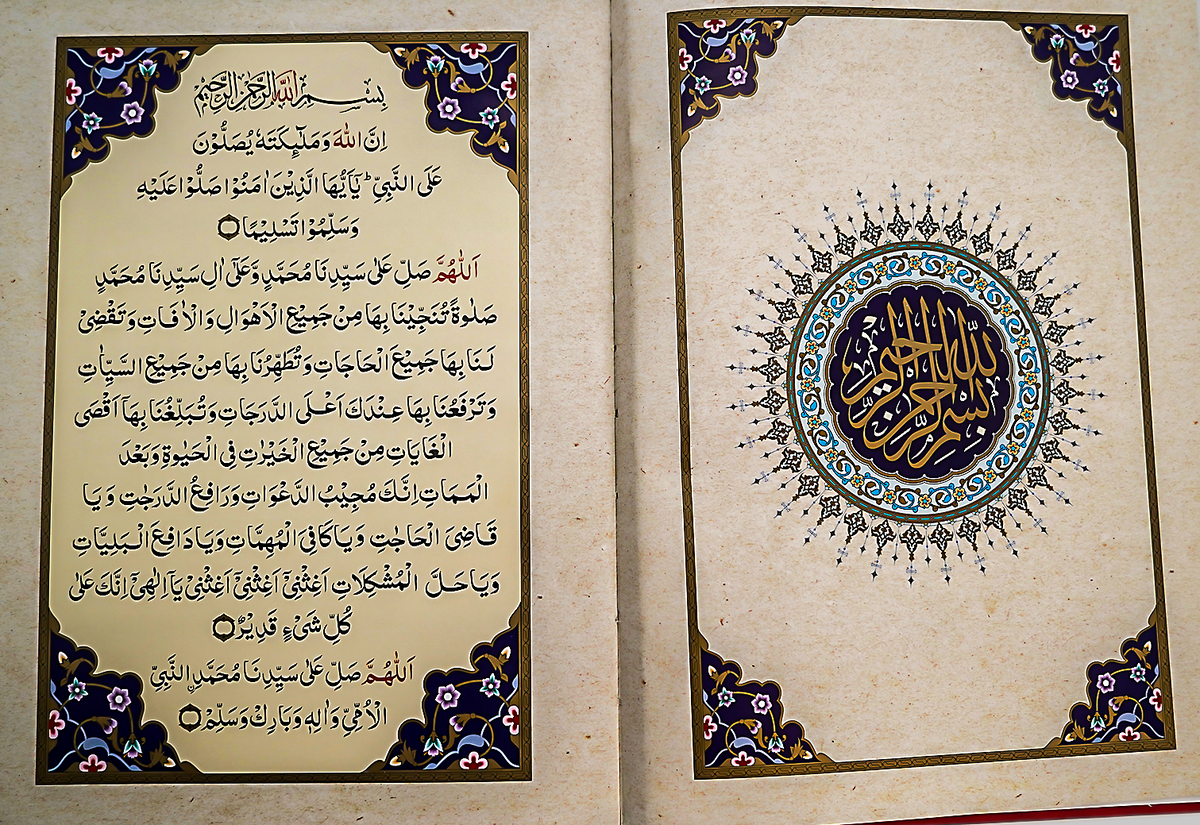 بسم الله الرحمن الرحيم
بِسْمِ اللهِ الرَّحْمٰنِ الرَّحِيْمِ
اِنَّ اللهَ وَمَلٰٓئِكَتَهٗ يُصَلُّوْنَ
عَلَى النَّبِيِّ ؕ يٰٓاَيُّهَا الَّذِيْنَ اٰمَنُوْا صَلُّوْا عَلَيْهِ
وَسَلِّمُوْا تَسْلِيْمًا
اَللّٰهُمَّ صَلِّ عَلٰى سَيِّدِنَا مُحَمَّدٍ وَّعَلٰٓى اٰلِ سَيِّدِنَا مُحَمَّدٍ
صَلٰوةً تُنَجِّيْنَا بِهَا مِنْ جَمِيْعِ الْاَهْوَالِ وَالْاٰفَاتِ وَتَقْضِيْ
لَنَا بِهَا جَمِيْعَ الْحَاجَاتِ وَتُطَهِّرُنَا بِهَا مِنْ جَمِيْعِ السَّيِّاٰتِ
وَتَرْفَعُنَا بِهَا عِنْدَكَ اَعْلَى الدَّرَجَاتِ وَتُبَلِّغُنَا بِهَآ اَقْصَى
الْغَايَاتِ مِنْ جَمِيْعِ الْخَيْرٰتِ فِى الْحَيٰوةِ وَبَعْدَ
الْمَمَاتِ اِنَّكَ مُجِيْبُ الدَّعْوَاتِ وَرَافِعُ الدَّرَجٰتِ وَيَا
قَاضِىَ الْحَاجٰتِ وَيَا كَافِىَ الْمُهِمَّاتِ وَيَا دَافِعَ الْبَلِيَّاتِ
وَيَا حَلَّ الْمُشْكِلَاتِ اَغِثْنِيْٓ اَغِثْنِيْٓ اَغِثْنِيْ يَآ اِلٰهِيْٓ اِنَّكَ عَلٰى
كُلِّ شَيْءٍ قَدِيْرٌ
اَللّٰهُمَّ صَلِّ عَلٰى سَيِّدِنَا مُحَمَّدِ ۨالنَّبِيِّ
الْاُمِّيِّ وَاٰلِهٖ وَبَارِكْ وَسَلِّمْ